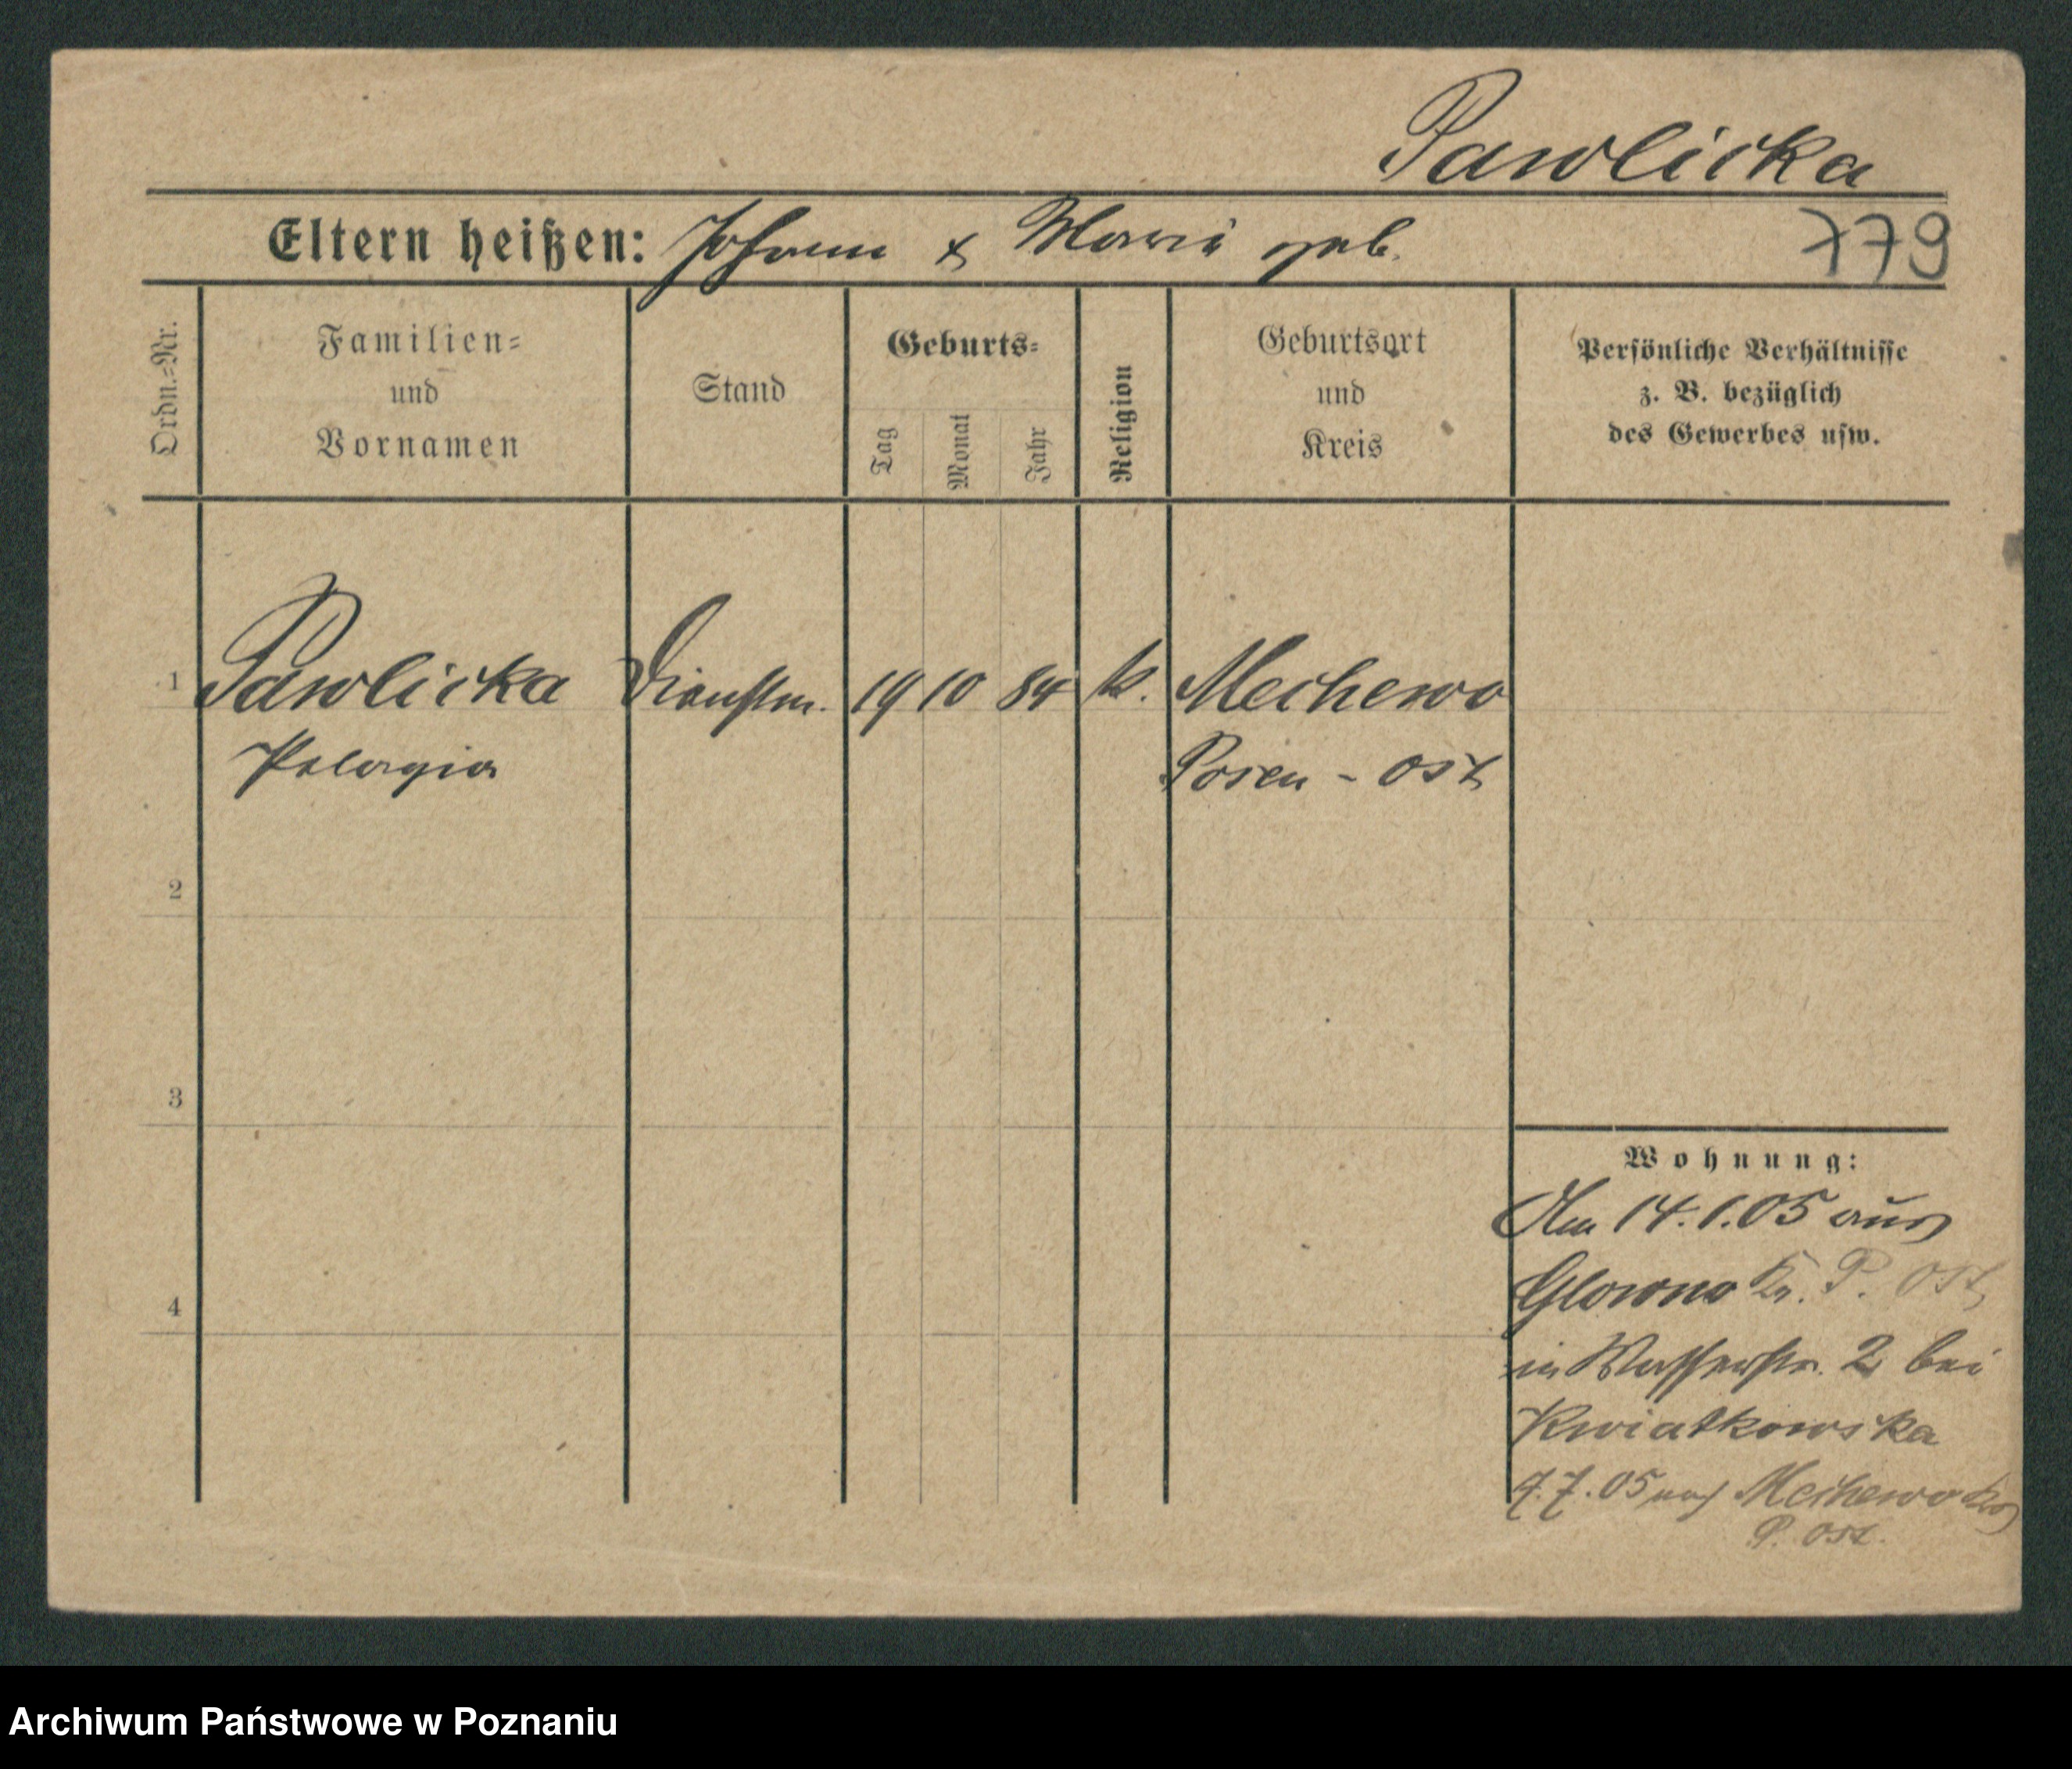 Pawlicka
Eltern heißen: Johann & Maria geb.
779
Ordn.=Nr.
Familien=
und
Vornamen
Stand
Geburts=
Tag
Monat
Jahr
Religion
Geburtsort
und
Kreis
Persönliche Verhältnisse
z. B. bezüglich
des Gewerbes usw.
1 Pawlicka Dienstm. 19 10 84 k. Mechewo
Pelagia Posen - Ost
2
3
4
Wohnung:
Am 14.1.05 aus
Glowno Kr. P. Ost
in Wasserstr. 2 bei
Kwiatkowska
9.7.05 nach Mechewo
P. Ost.
Archiwum Państwowe w Poznaniu